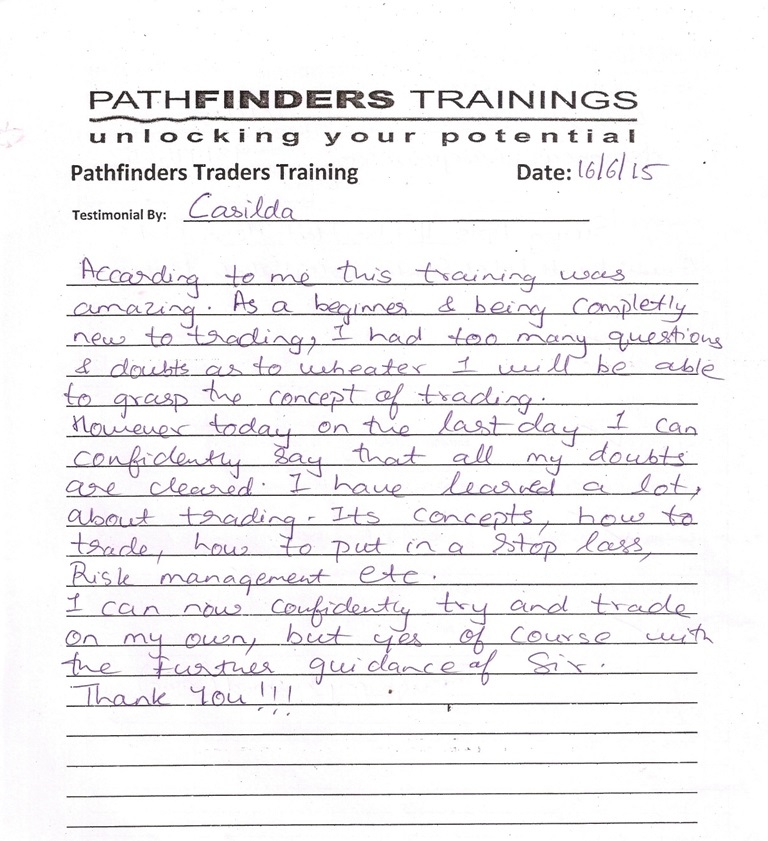 PATHFINDERS TRAININGS
unlocking your potential
Pathfinders Traders Training Date: 16/6/15
Testimonial By: Casilda
According to me this training was
amazing. As a beginner & being completly
new to trading, I had too many questions
& doubts as to wheater I will be able
to grasp the concept of trading.
However today on the last day I can
confidently say that all my doubts
are cleared. I have learned a lot,
about trading. Its concepts, how to
trade, how to put in a stop loss,
Risk management etc.
I can now confidently try and trade
on my own, but yes of course with
the Further guidance of Sir.
Thank You!!!